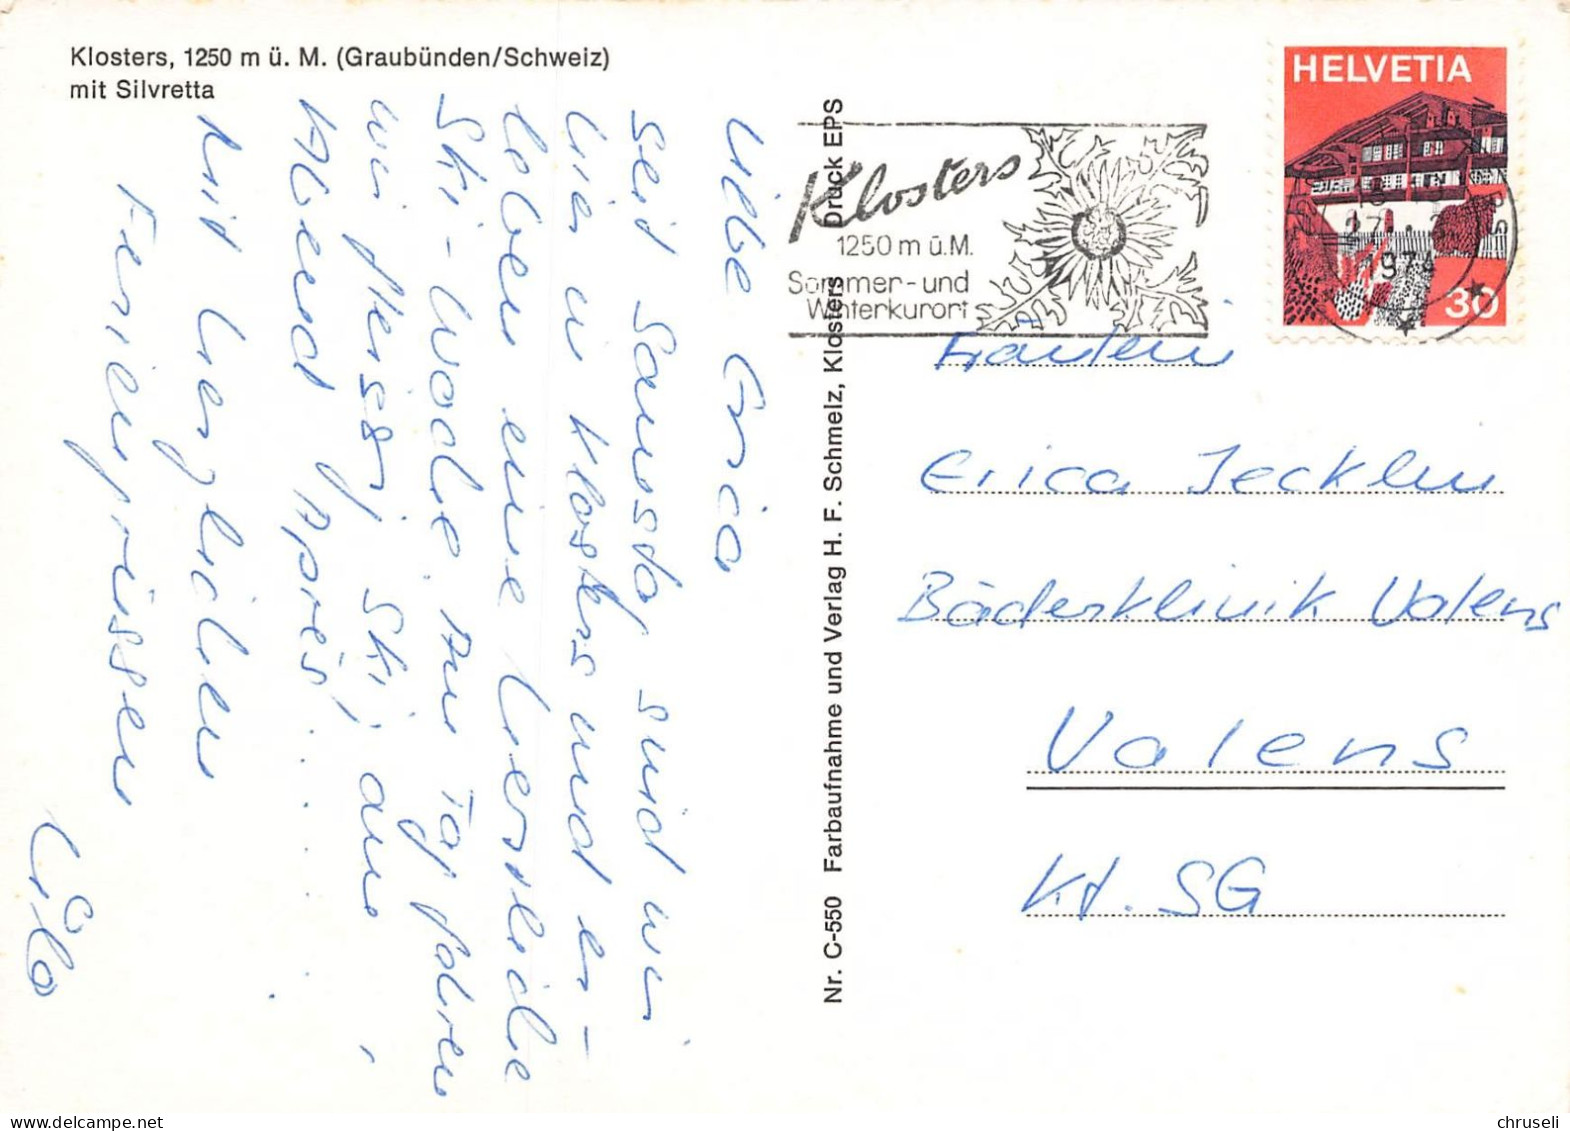 Klosters, 1250 m ü. M. (Graubünden/Schweiz)
mit Silvretta
Liebe Erica
Seit Samstag sind wir
hier in Klosters und er-
leben eine herrliche
Ski-Woche. Am Tag fahren
wir fleissig Ski, am
Abend Après.......
Mit herzlichen
Feriengrüssen
Nr. C-550 Farbaufnahme und Verlag H. F. Schmelz, Klosters Druck EPS
Klosters
1250 m ü.M.
Sommer- und
Winterkurort
HELVETIA
30
1974
Fräulein
Erica Jecklin
Bäderklinik Valens
Valens
Kt. SG
chruseli